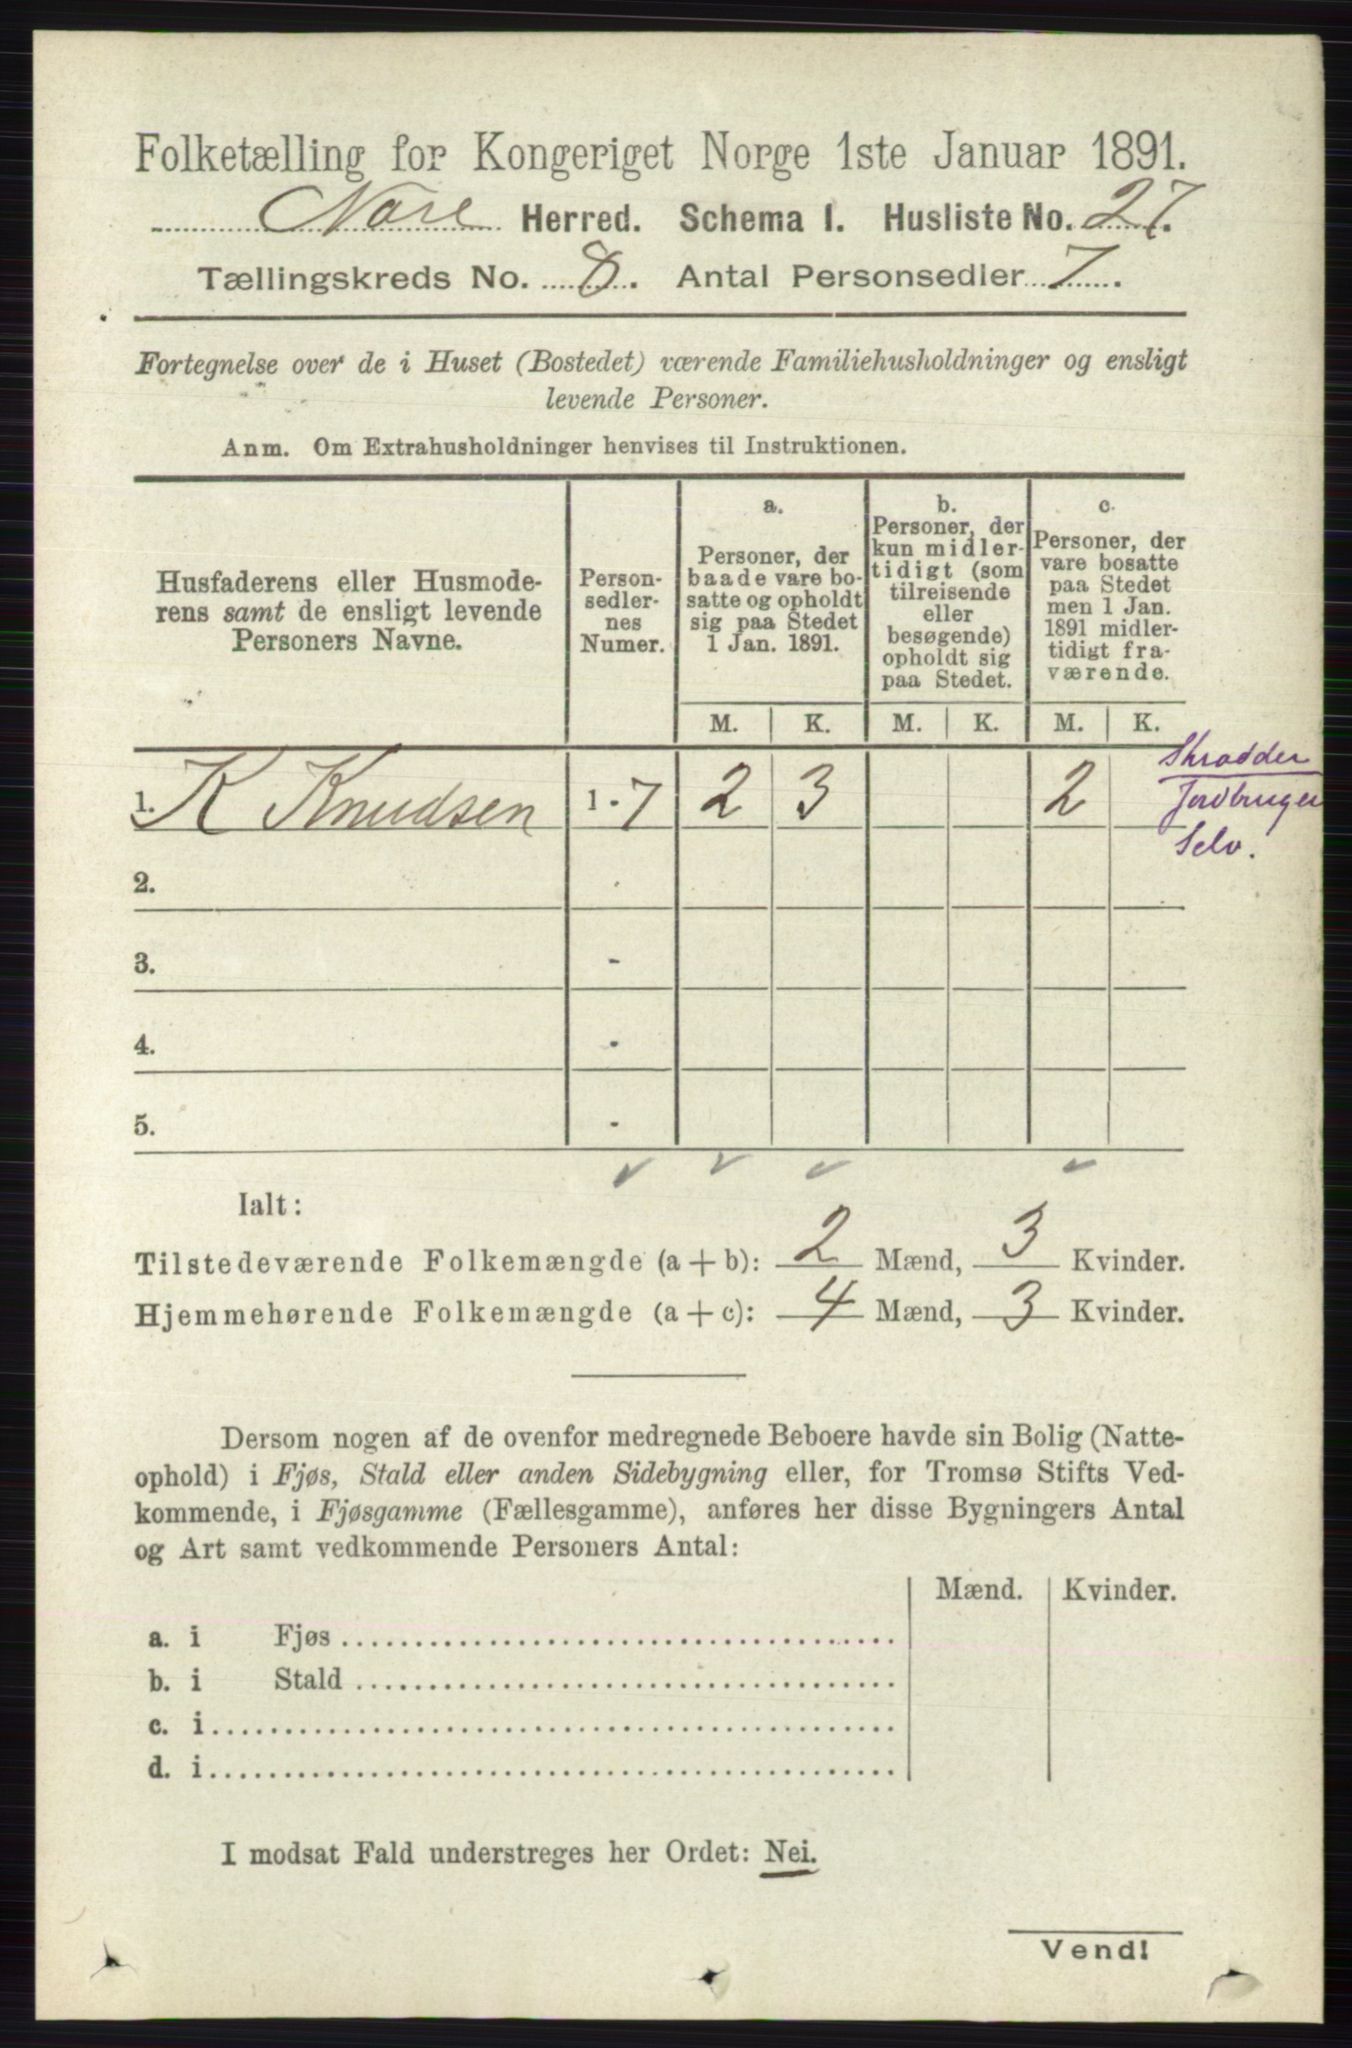 Folketælling for Kongeriget Norge 1ste Januar 1891.
Nore Herred. Schema I. Husliste No. 27.
Tællingskreds No. 8. Antal Personsedler 7.
Fortegnelse over de i Huset (Bostedet) værende Familiehusholdninger og ensligt
levende Personer.
Anm. Om Extrahusholdninger henvises til Instruktionen.
Husfaderens eller Husmode-
rens samt de ensligt levende
Personers Navne.
Person-
sedler-
nes
Numer.
a.
Personer, der
baade vare bo-
satte og opholdt
sig paa Stedet
1 Jan. 1891.
b.
Personer, der
kun midler-
tidigt (som
tilreisende
eller
besøgende)
opholdt sig
paa Stedet.
c.
Personer, der
vare bosatte
paa Stedet
men 1 Jan.
1891 midler-
tidigt fra-
værende.
M. K. M. K. M. K.
1. K Knudsen 1 - 7 2 3 2
Skrædder
Jordbruger
Selv.
2.
3. -
4. -
5. -
Ialt:
Tilstedeværende Folkemængde (a + b): 2 Mænd, 3 Kvinder.
Hjemmehørende Folkemængde (a + c): 4 Mænd, 3 Kvinder.
Dersom nogen af de ovenfor medregnede Beboere havde sin Bolig (Natte-
ophold) i Fjøs, Stald eller anden Sidebygning eller, for Tromsø Stifts Ved-
kommende, i Fjøsgamme (Fællesgamme), anføres her disse Bygningers Antal
og Art samt vedkommende Personers Antal:
Mænd. Kvinder.
a. i Fjøs
b. i Stald
c. i
d. i
I modsat Fald understreges her Ordet: Nei.
Vend!